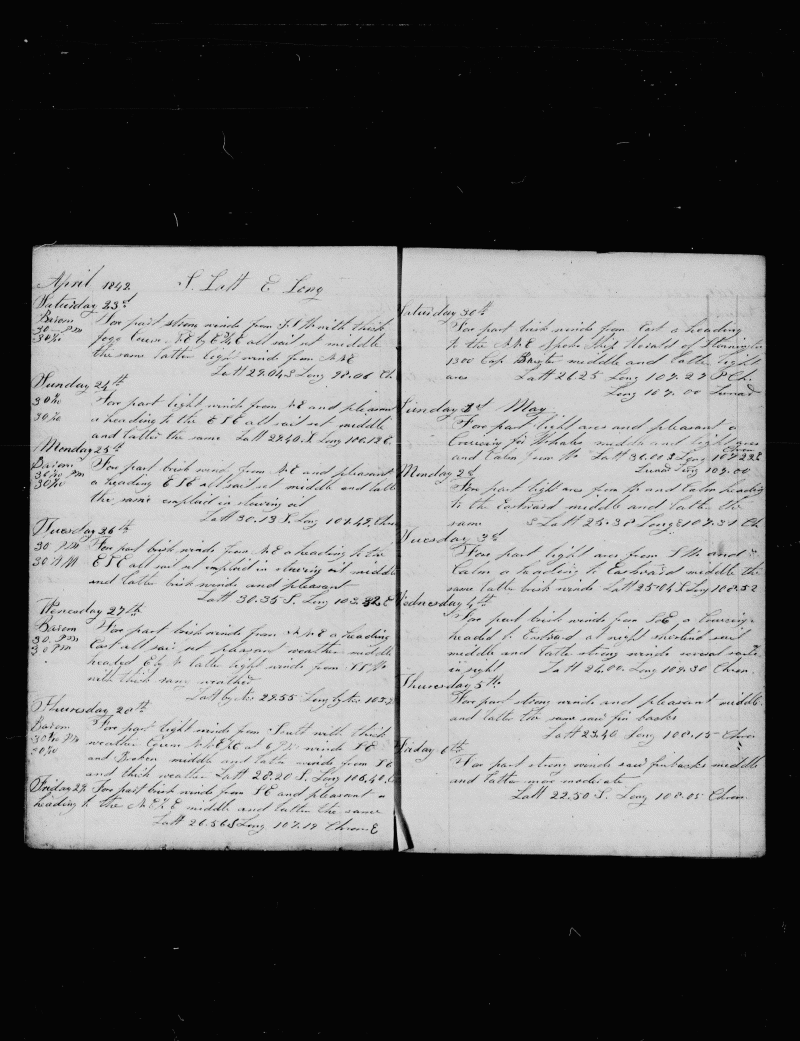 April 1842 S. Latt E Long
Saturday 23rd
Barom Fore part strom winds from S S W with thick
30 PM fogg Corse N E by E ½ E all sail set middle
the same latter light winds from N N E
Latt 29.04 S Long 98.06 Ch
Sunday 24th
Fore part light winds from N E and pleasant
a heading to the E S E all sail set middle
and latter the same Latt 29.40 S. Long 100.12 E
Monday 25th
Barom Fore part brisk winds from N E and pleasant
a heading E S E all sail set middle and latter
the same employed in stowing oil
Latt 30.13 S. Long 101.42 Chron
Tuesday 26th
30 PM Fore part brisk winds from N E a heading to the
30 AM E S E all sail set employed in stowing oil middle
and latter brisk winds and pleasant
Latt 30.35 S. Long 103.32 E
Wenesday 27th
Barom Fore part brisk winds from N N E a heading
30. PM East all sail set pleasant weather middle
headed E by N latter light winds from
with thick weather
Latt by 29.55 Long by 105.
Thursday 28th
Barom Fore part light winds from South with thick
weather Corse at 6 PM winds S E
and Broken middle and latter winds from S E
and thick weather Latt 28.20 S. Long 106.40 E
Friday 29 Fore part brisk winds from S E and pleasant a
heading to the N E ½ E middle and latter the same
Latt 26.56 S Long 107.19 Chron E
Saturday 30th
Fore part brisk winds from East a heading
to the N N E Spoke Ship Herald of Stonington
1300 Cap middle and latter light
ares Latt 26.25 Long 107.27 P Ch.
Long 107.00 Lunar
Sunday 1st May
Fore part light ares and pleasant a
Cruising for Whales middle and light ares
and Calm from the Latt 26.00 S Long 107.22 E Chron
Lunar Long 107.00
Monday 2d
Fore part light ares from and Calm heading
to the Eastward middle and latter the
same S Latt 25.38 Long E 107.31 Ch.
Tuesday 3d
Fore part light ares from S W and
Calm a heading to Eastward middle the
same latter brisk winds Latt 25.04 S Long 108.32
Wednesday 4th
Fore part brisk winds from S E a Cruising
headed to Eastward at night shortend sail
middle and latter strong winds several sails
in sight Latt 24.00. Long 109.30 Chron.
Thursday 5th
Fore part strong winds and pleasant middle
and latter the same saw fin backs
Latt 23.40 Long 108.15 Chron
Friday 6th
Fore part strong winds saw finbacks middle
and latter more moderate
Latt 22.50 S. Long 108.05 Chron.